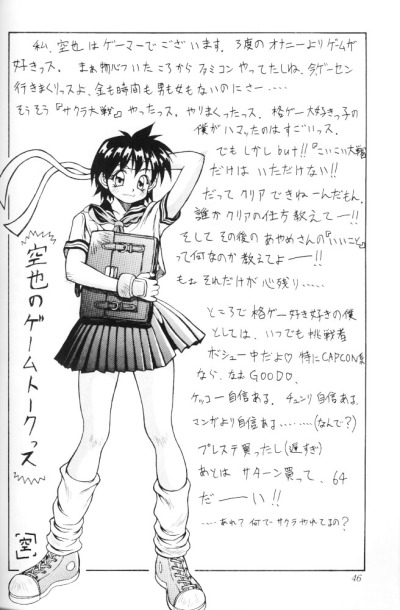 私、空也はゲーマーでございます。3度のオナニーよりゲームが
好きっス。まぁ物心ついたころからファミコンやってたしね。今、ゲーセン
行きまくりっスよ、金も時間も男も女もないのにさー‥‥
そうそう『サクラ大戦』やったっス。やりまくったっス。格ゲー大好きっ子の
僕がハマッたのはすごいっス。
でも しかし but!!『こいこい大戦』
だけは いただけない!!
だって クリア できねーんだもん。
誰か クリアの仕方 教えてー!!
そして その後の あやめさんの『いいこと』
って何なのか 教えてよー!!
もぉ それだけが 心残り‥‥‥
ところで 格ゲー好き好きの僕
としては、いつでも 挑戦者
ボシュー中だよ♡ 特にCAPCON系
なら、なお GOOD♡。
ケッコー自信ある。チュンリ自信ある。
マンガより自信ある‥‥‥‥(なんで?)
プレステ買ったし(遅すぎ)
あとは サターン買って、64
だーい!!
‥‥あれ?何でサクラやれてるの?
空也のゲームトークっス
[空]
46